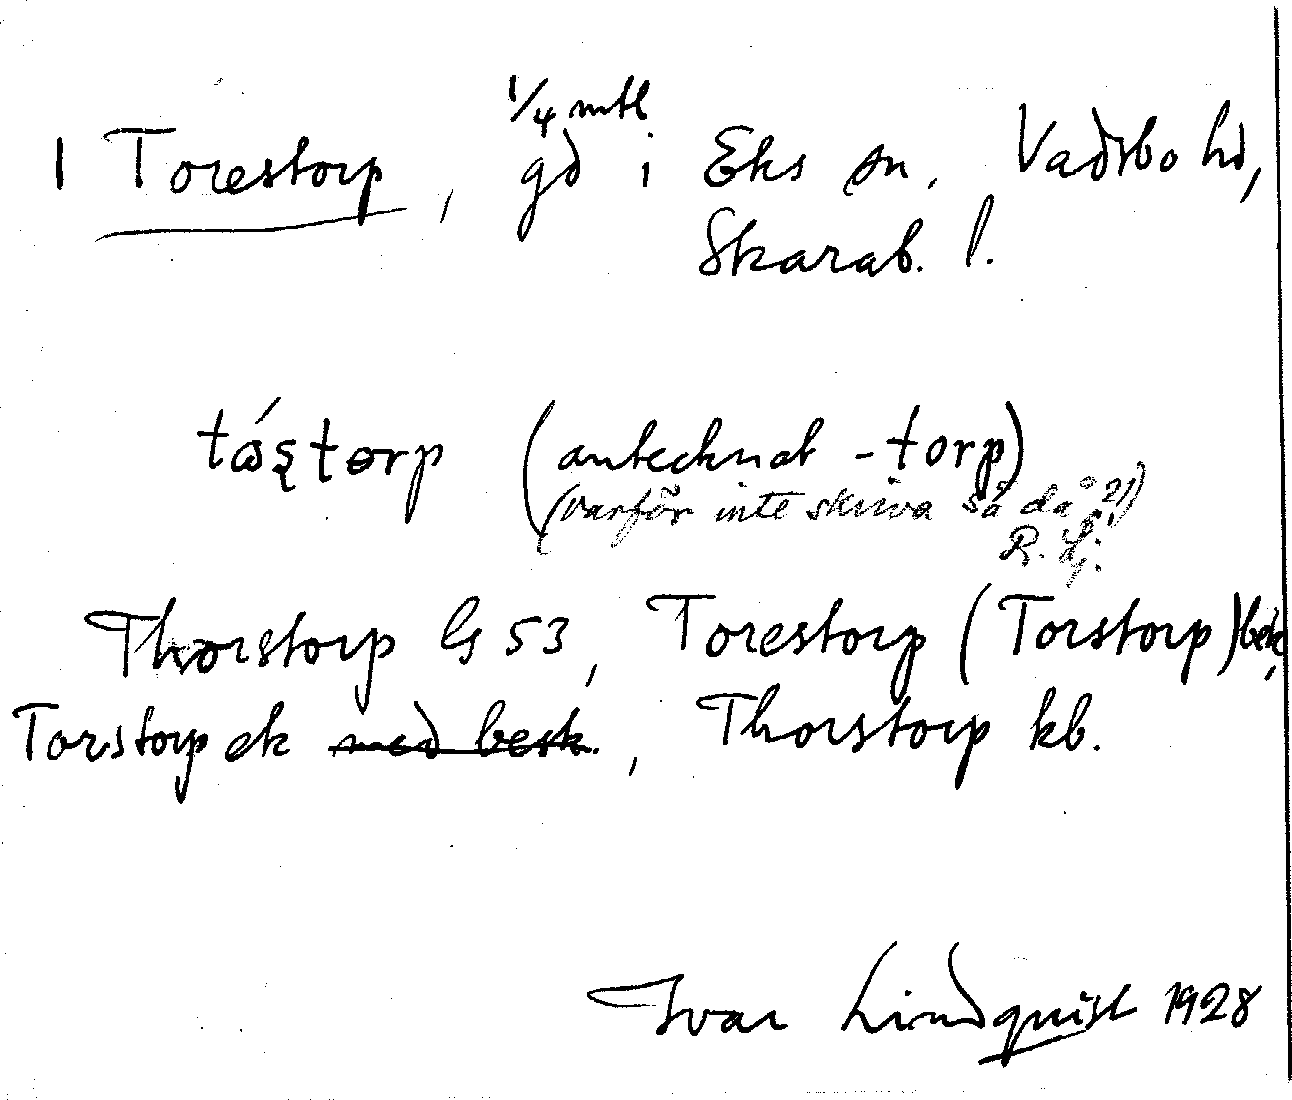 1/4 mtl
1 Torestorp, gd i Eks sn. Vadsbo hd,
Skarab. l.
tǿstorp (antecknat -torp)
(varför inte skriva så då?!)
R. Lj.
Thorstorp G 53, Torestorp (Torstorp) bek,
Torstorp ek med besk., Thorstorp kb.
Ivar Lindquist 1928